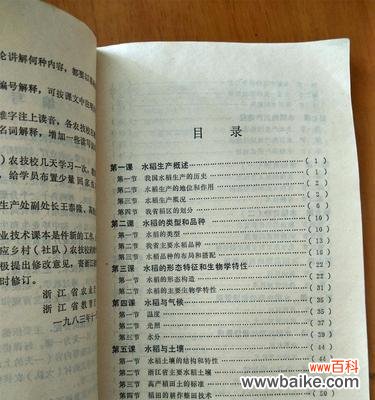 论讲解何种内容，都要以
编号解释，可按课文中
准字注上读音，各农技校
名词解释，增加一些读写
）农技校几天学习一次，
，给学员布置少量回家
生产处副处长王泰隆、
业技术课本是件新的工作，
应乡村（社队）农技校
极提出修改意见，寄浙江
时修订。
浙江省农业
浙江省教育
一九八三年十
目 录
第一课 水稻生产概述 （1）
第一节 我国水稻生产的历史 （1）
第二节 水稻生产的地位和作用 （2）
第三节 水稻生产概况 （2）
第四节 我省稻区的划分 （6）
第二课 水稻的类型和品种 （10）
第一节 水稻的类型 （10）
第二节 我省主要水稻品种 （13）
第三节 水稻品种的布局和搭配 （16）
第三课 水稻的形态特征和生物学特性 （22）
第一节 水稻的形态构造 （22）
第二节 水稻的主要生物学特性 （31）
第四课 水稻与气候 （35）
第一节 温度 （35）
第二节 光照 （37）
第三节 水分 （39）
第五课 水稻与土壤 （44）
第一节 水稻土壤的结构和特性 （44）
第二节 浙江省主要水稻土
第三节 高产稻田土的标准
第四节 稻田的耕作整田技术 （50）
www百科
www.baike.com